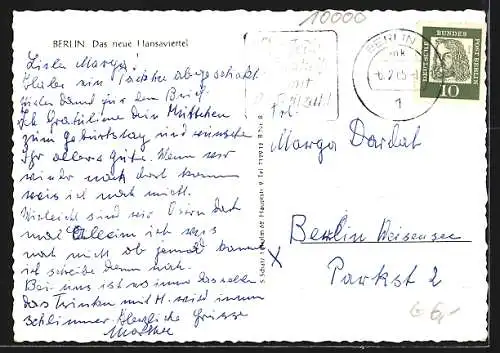 10000
BERLIN Das neue Hansaviertel
Liebe Marga!
Habe ein Päckchen abgeschickt
vielen Dank für den Brief
Ich Gratuliere Dein Müttchen
zum Geburtstag und wünsche
Ihr alles Gute. Wann wir
wieder nach dort kommen
weis ich noch nicht.
Vieleicht sind wir Ostern dort
mal Alleim ich weis
noch nicht ob jemand kommt
ich schreibe dann noch.
Bei uns ist es immer dasselbe
das Trinken mit H. wird immer
schlimmer. Herzliche Grüsse
BERLIN
1
DEUTSCHE BUNDESPOST BERLIN
10
Frl.
Marga Dardat
Berlin Weisensee
Parkst 2